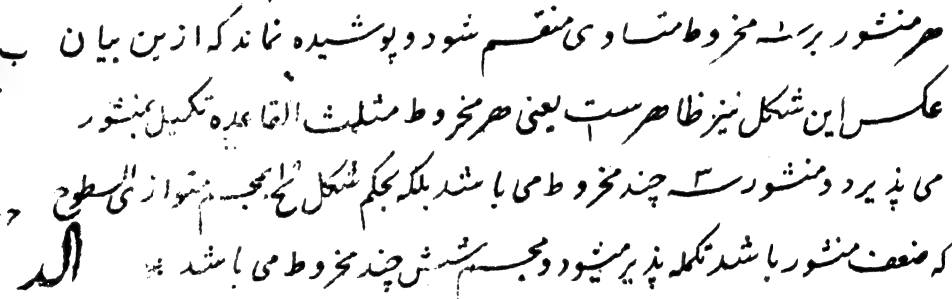 هر منشور بر سه مخروط متساوی منقسم شود و پوشیده نماند که ازین بیان ب
عکس این شکل نیز ظاهرست یعنی هر مخروط مثلث القاعده تکمیل بمنشور
می پذیرد و منشور سه چند مخروط می باشد بلکه بحکم شکل مجسم متوازی السطوح
که ضعف منشور باشد تکمله پذیر میشود و مجسم شش چند مخروط می باشد